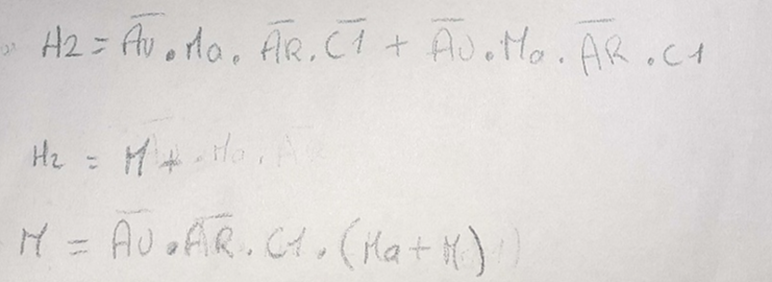 H2 = A̅U̅ . Ma . A̅R̅ . C̅1̅ + A̅U̅ . Ma . A̅R̅ . C1
H2 = M +
M = A̅U̅ . A̅R̅ . C1 . (Ma + M)